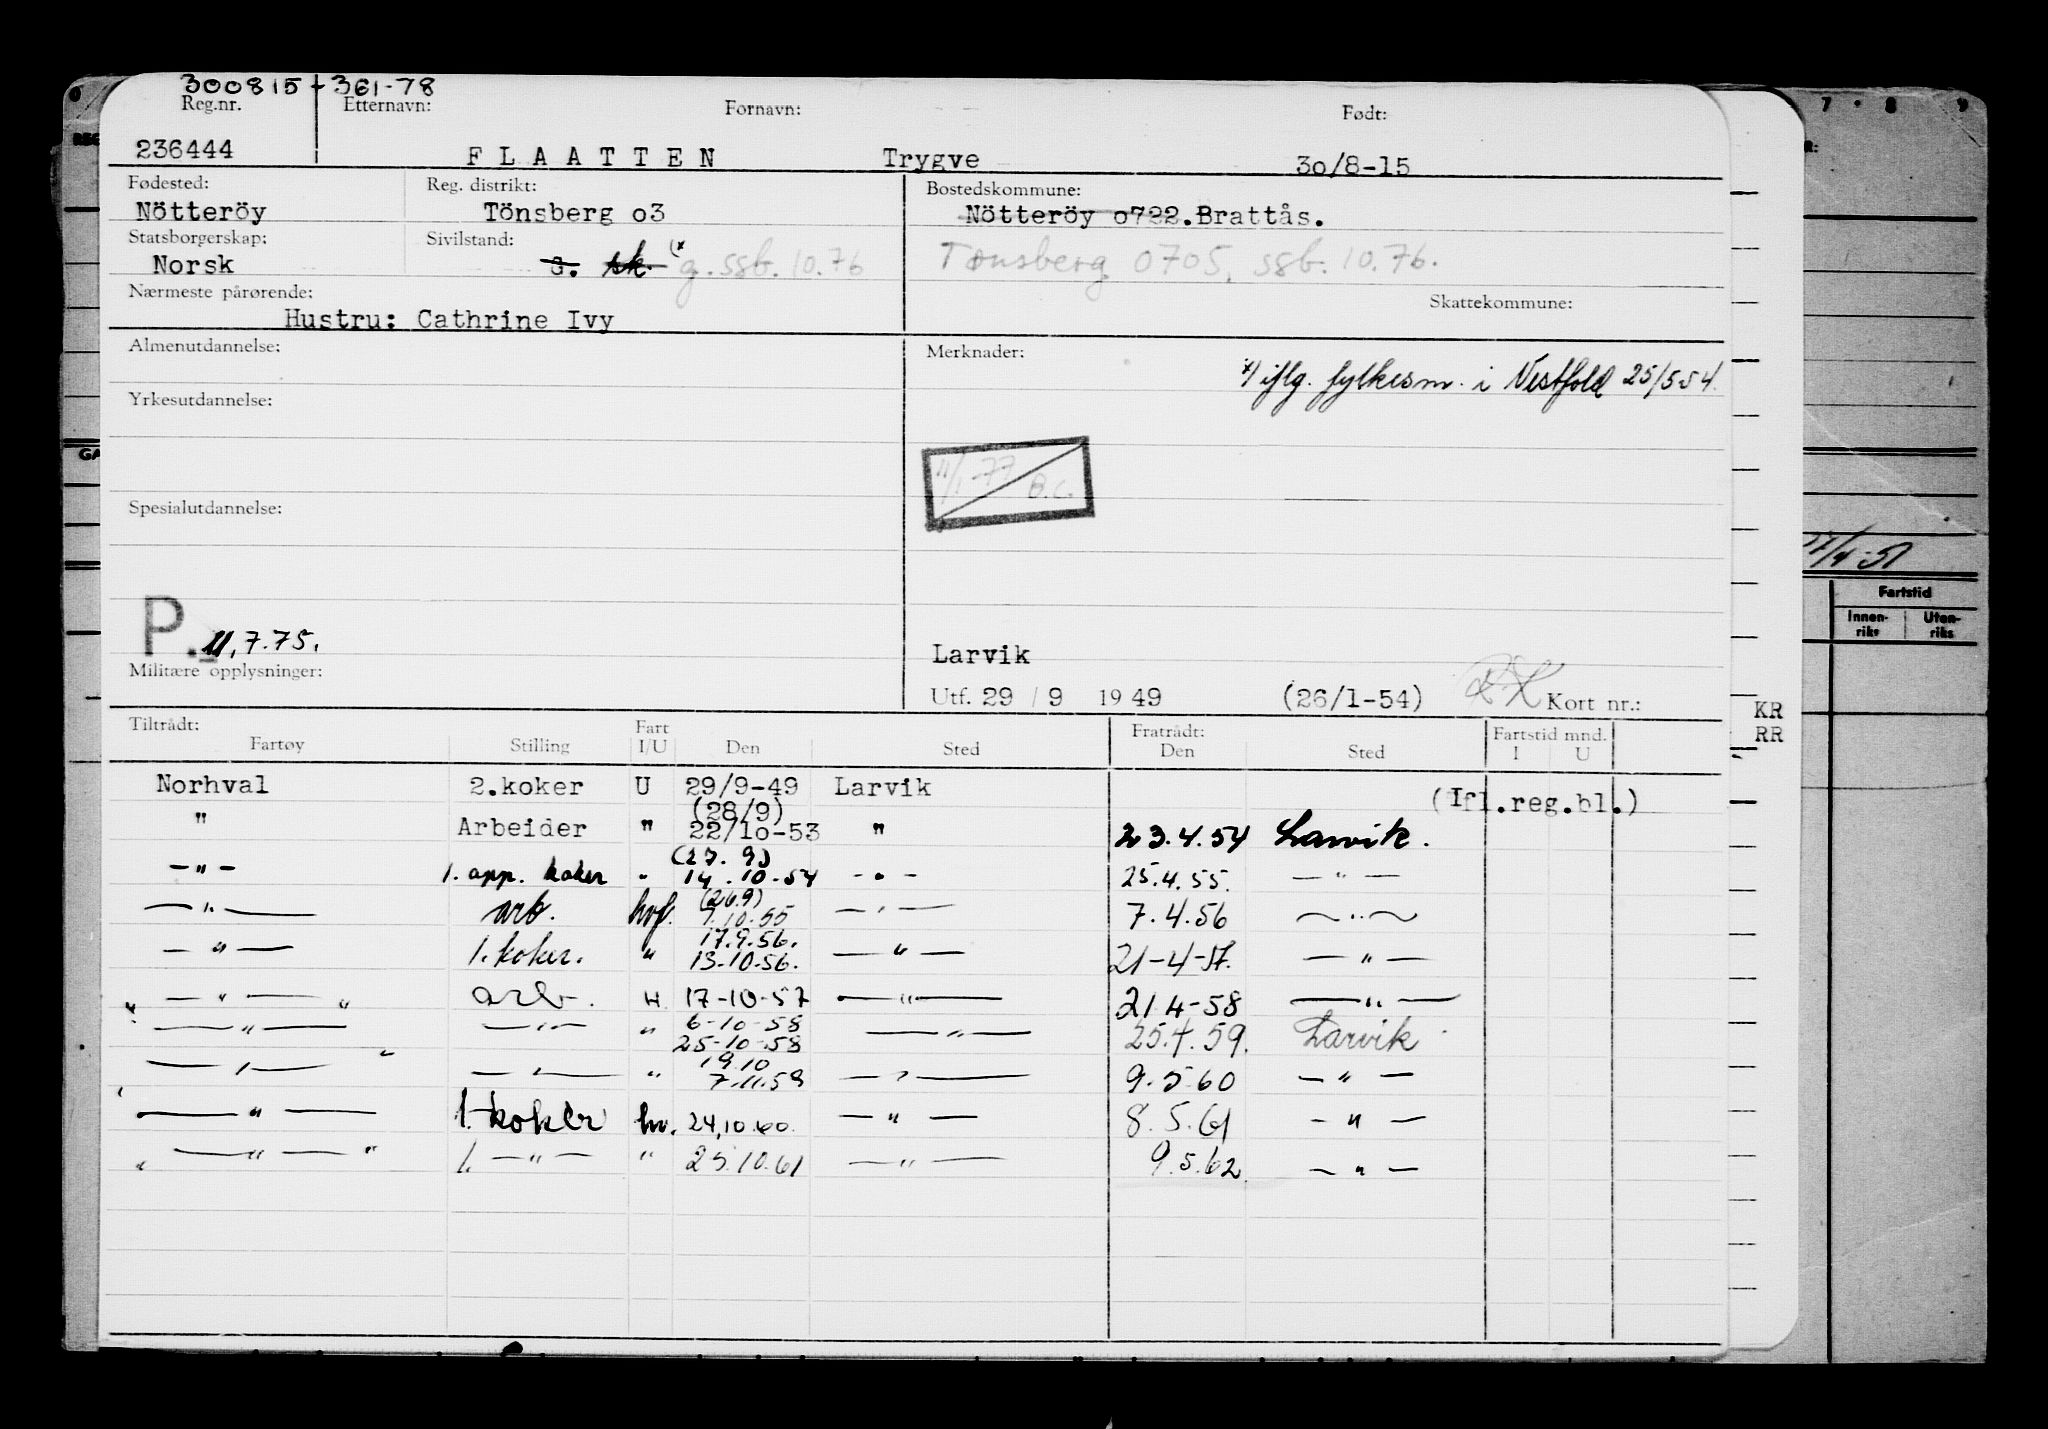 300815-361-78
Reg.nr. Etternavn: Fornavn: Født:
236444 F L A A T T E N Trygve 3o/8-15
Fødested: Reg. distrikt: Bostedskommune:
Nötteröy Tönsberg o3 Nötteröy o722.Brattås.
Statsborgerskap: Sivilstand:
Norsk G. sk. (* g. ssb. 10.76 Tønsberg 0705, ssb. 10.76.
Nærmeste pårørende: Skattekommune:
Hustru: Cathrine Ivy
Almenutdannelse: Merknader:
*) iflg. fylkesm. i Vestfold 25/5 54.
Yrkesutdannelse:
11/1-77 B.C.
Spesialutdannelse:
P. 11.7.75.
Larvik
Militære opplysninger:
Utf. 29 / 9 1949 (26/1-54) Kort nr.:
KR
RR
Tiltrådt: Fart Fratrådt: Fartstid mnd.
Fartøy Stilling I/U Den Sted Den Sted I U
Norhval 2.koker U 29/9-49 Larvik (Ifl.reg.bl.)
(28/9)
" Arbeider " 22/1o-53 " 23.4.54 Larvik.
(27.9)
-"- 1. app. koker " 14.10-54 -"- 25.4.55. -"-
(26.9)
-"- arb. hvf. 7.10.55 -"- 7.4.56 -"-
17.9.56.
-"- 1. koker. " 13-10-56. -"- 21-4-57. -"-
" -"- " arb. H 17-10-57 -"- 21 4-58 -"-
6-10-58
-"- -"- " 25-10-58 -"- 25.4.59. Larvik
19.10
-"- " -"- " 7.11.59 -"- 9.5 60 -"-
-"- 1. koker hv. 24,10.60. -"- 8.5.61 -"-
" -"- " 1. -"- " 25.10.61 -"- 9.5.62. -"-
7 8 9
GA
17/4-51
Fartstid
Innen-
riks
Uten-
riks